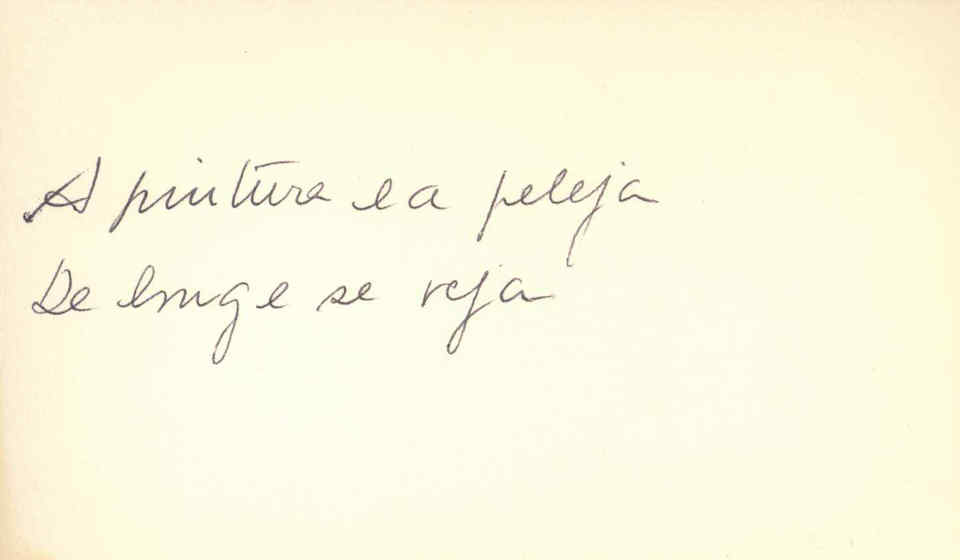 A pintura e a peleja
De longe se veja